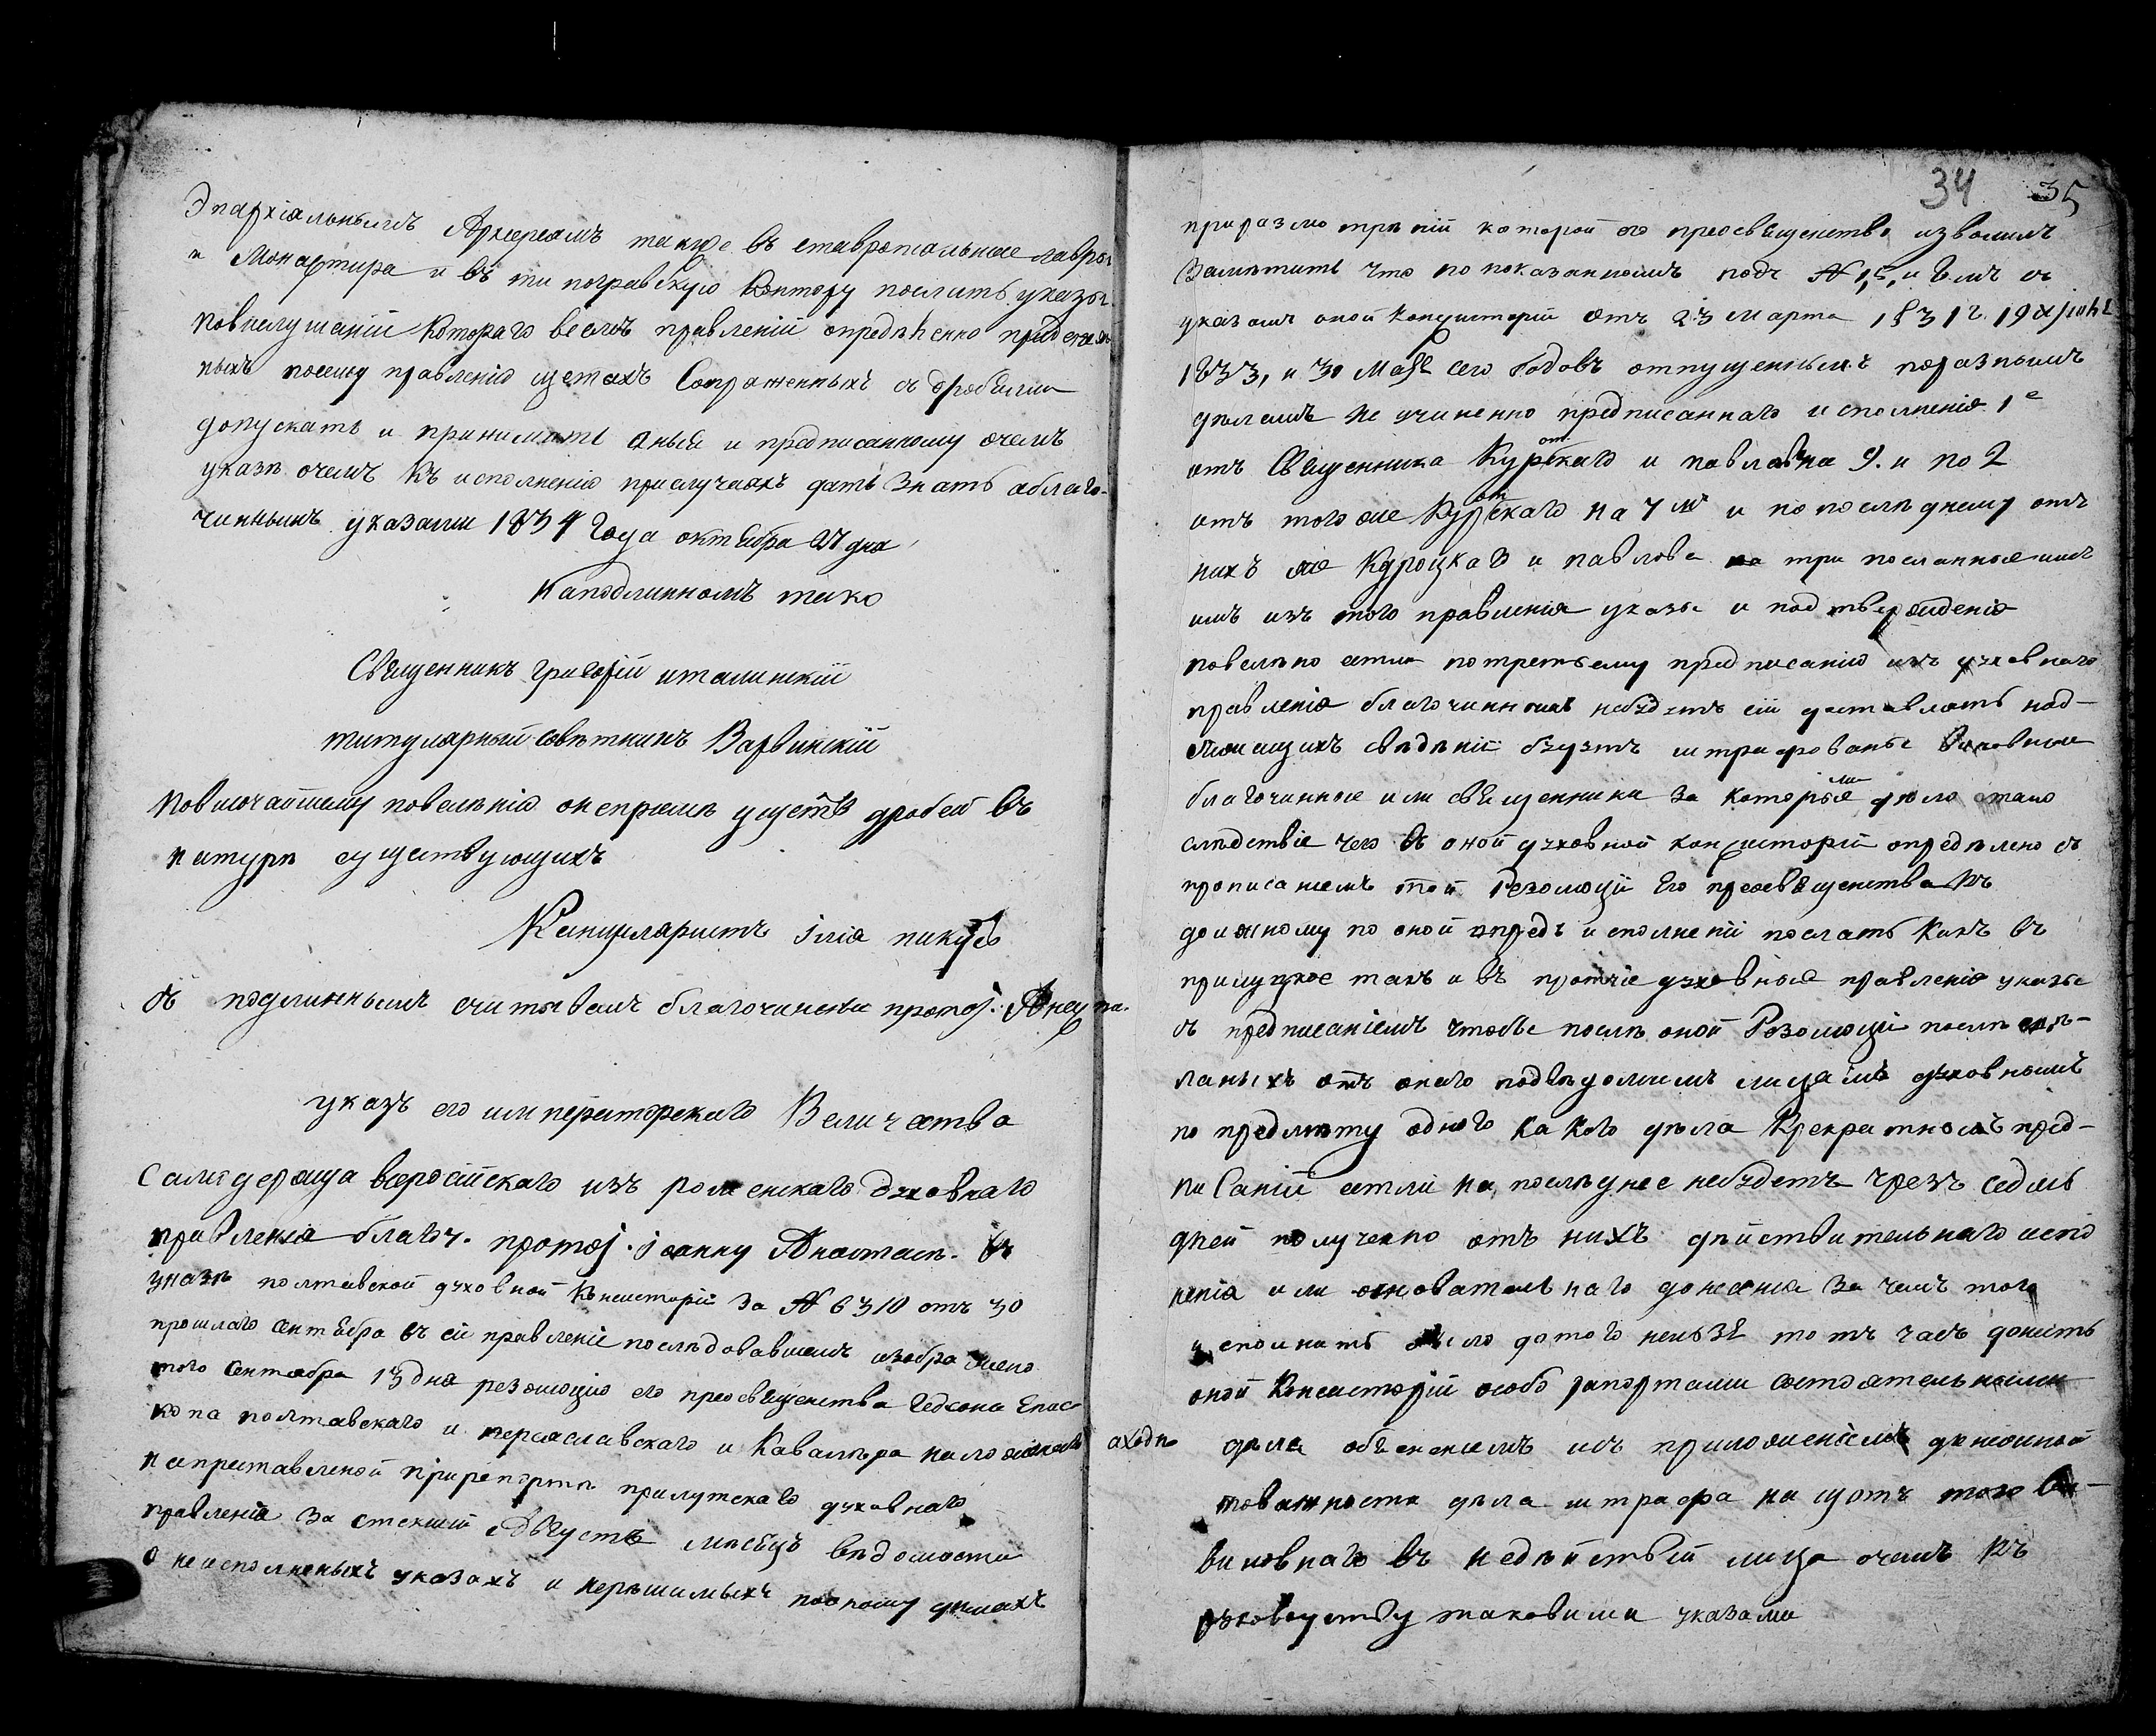 Эпархіальнымъ Архереамъ такде въ ставропальные лавры
и Монастира и въ типогравскую Контору послать указы
повыслушаніи Которого всемъ правленіи опредѣленно
пыхъ посему правленію щетахъ Сопраженныхъ съ дробями
допускать и принимать оные и предписанному очемъ
указъ очемъ Къ исполненію прислучаяхъ дать Знать облаго-
чиннымъ указами 1834 Года октября 27 дня
Наподлинномъ тако
Священникъ григорій италинскій
титулярный совѣтникъ Варвинскій
Повисочайшему повелѣнію онепріемѣ ущетѣ дробей въ
натурѣ существующихъ
Канцеляристъ Ілія пикусъ
съ подлиннымъ считывалъ благочинный протоі. Анаста.
указъ его императорскаго Величества
Самодержца всеросійскаго изъ роменскаго духовнаго
правленія благоч. протоі. іоанну Анастасѣ. въ
указѣ полтавской духовной Кансисторіи За № 6310 отъ 30
прошлаго сентября въ сіе правленіе послѣдовавшемъ изображено
того Сентября 13 дня резолюцію его преосвященства Гедеона Епис-
копа полтавскаго и переяславскаго и Кавалѣра
напреставленой прирепортѣ прилутскаго духовнаго
правленія За стекшій Августъ мѣсяцъ вѣдомости
О неисполненыхъ указахъ и нерѣшимыхъ поономy дѣлахъ
34 35
приразсмотрѣніи которой его преосвященство изволилъ
Замѣтить что по показаннымъ подъ № 1, 5, и
указомъ оной Консисторіи отъ 23 марта 1831 г. 19
1833, и 30 мая сего Годовъ отпущеннымъ поразнымъ
дѣламъ не учиненно предписаннаго исполненія 1е
отъ Священника Курскаго и павлова на 9. и по 2
отъ того же Курскаго на 7 и по послѣднему отъ
нихъ же Куроцкаго и павлова на три посланные
имъ изъ того правленія указы и подтвержденія
повелѣно естли потретьему предписанію изъ духовнаго
правленія благочинныя небудетъ сіи доставлять над-
лежащихъ свѣдѣніи будутъ штрафованы виновныи
благочинные или священники За которыми дѣло стало
слѣдствіе чего въ оной духовной консисторіи опредѣлено съ
прописаніемъ той Резолюціи Его преосвященства къ
должному по оной впредъ исполненіи послать Какъ въ
прилуцкое такъ и въ протчіе духовные правленія указы
съ предписаніемъ чтобы послѣ оной Резолюціи послѣ
ланыхъ отъ онаго подвѣдомымъ лицамъ духовнымъ
по предмѣту одного какого дѣла Кракратномъ пред-
писаніи естли на послѣднее небудетъ чрезъ седмь
дней полученно отъ нихъ дѣйствительнаго испо
ненія или основательнаго донесенія За чемъ того
исполнить было дотого нельзя тотъ часъ донесть
оной Консисторіи особо рапортами состоятельными
оходѣ дѣла обясненіемъ исъ приложеніемъ денежной
поважности дѣла штрафа на щотъ того
виновнаго въ недѣйствіи лица очемъ къ
руководству таковыми указами